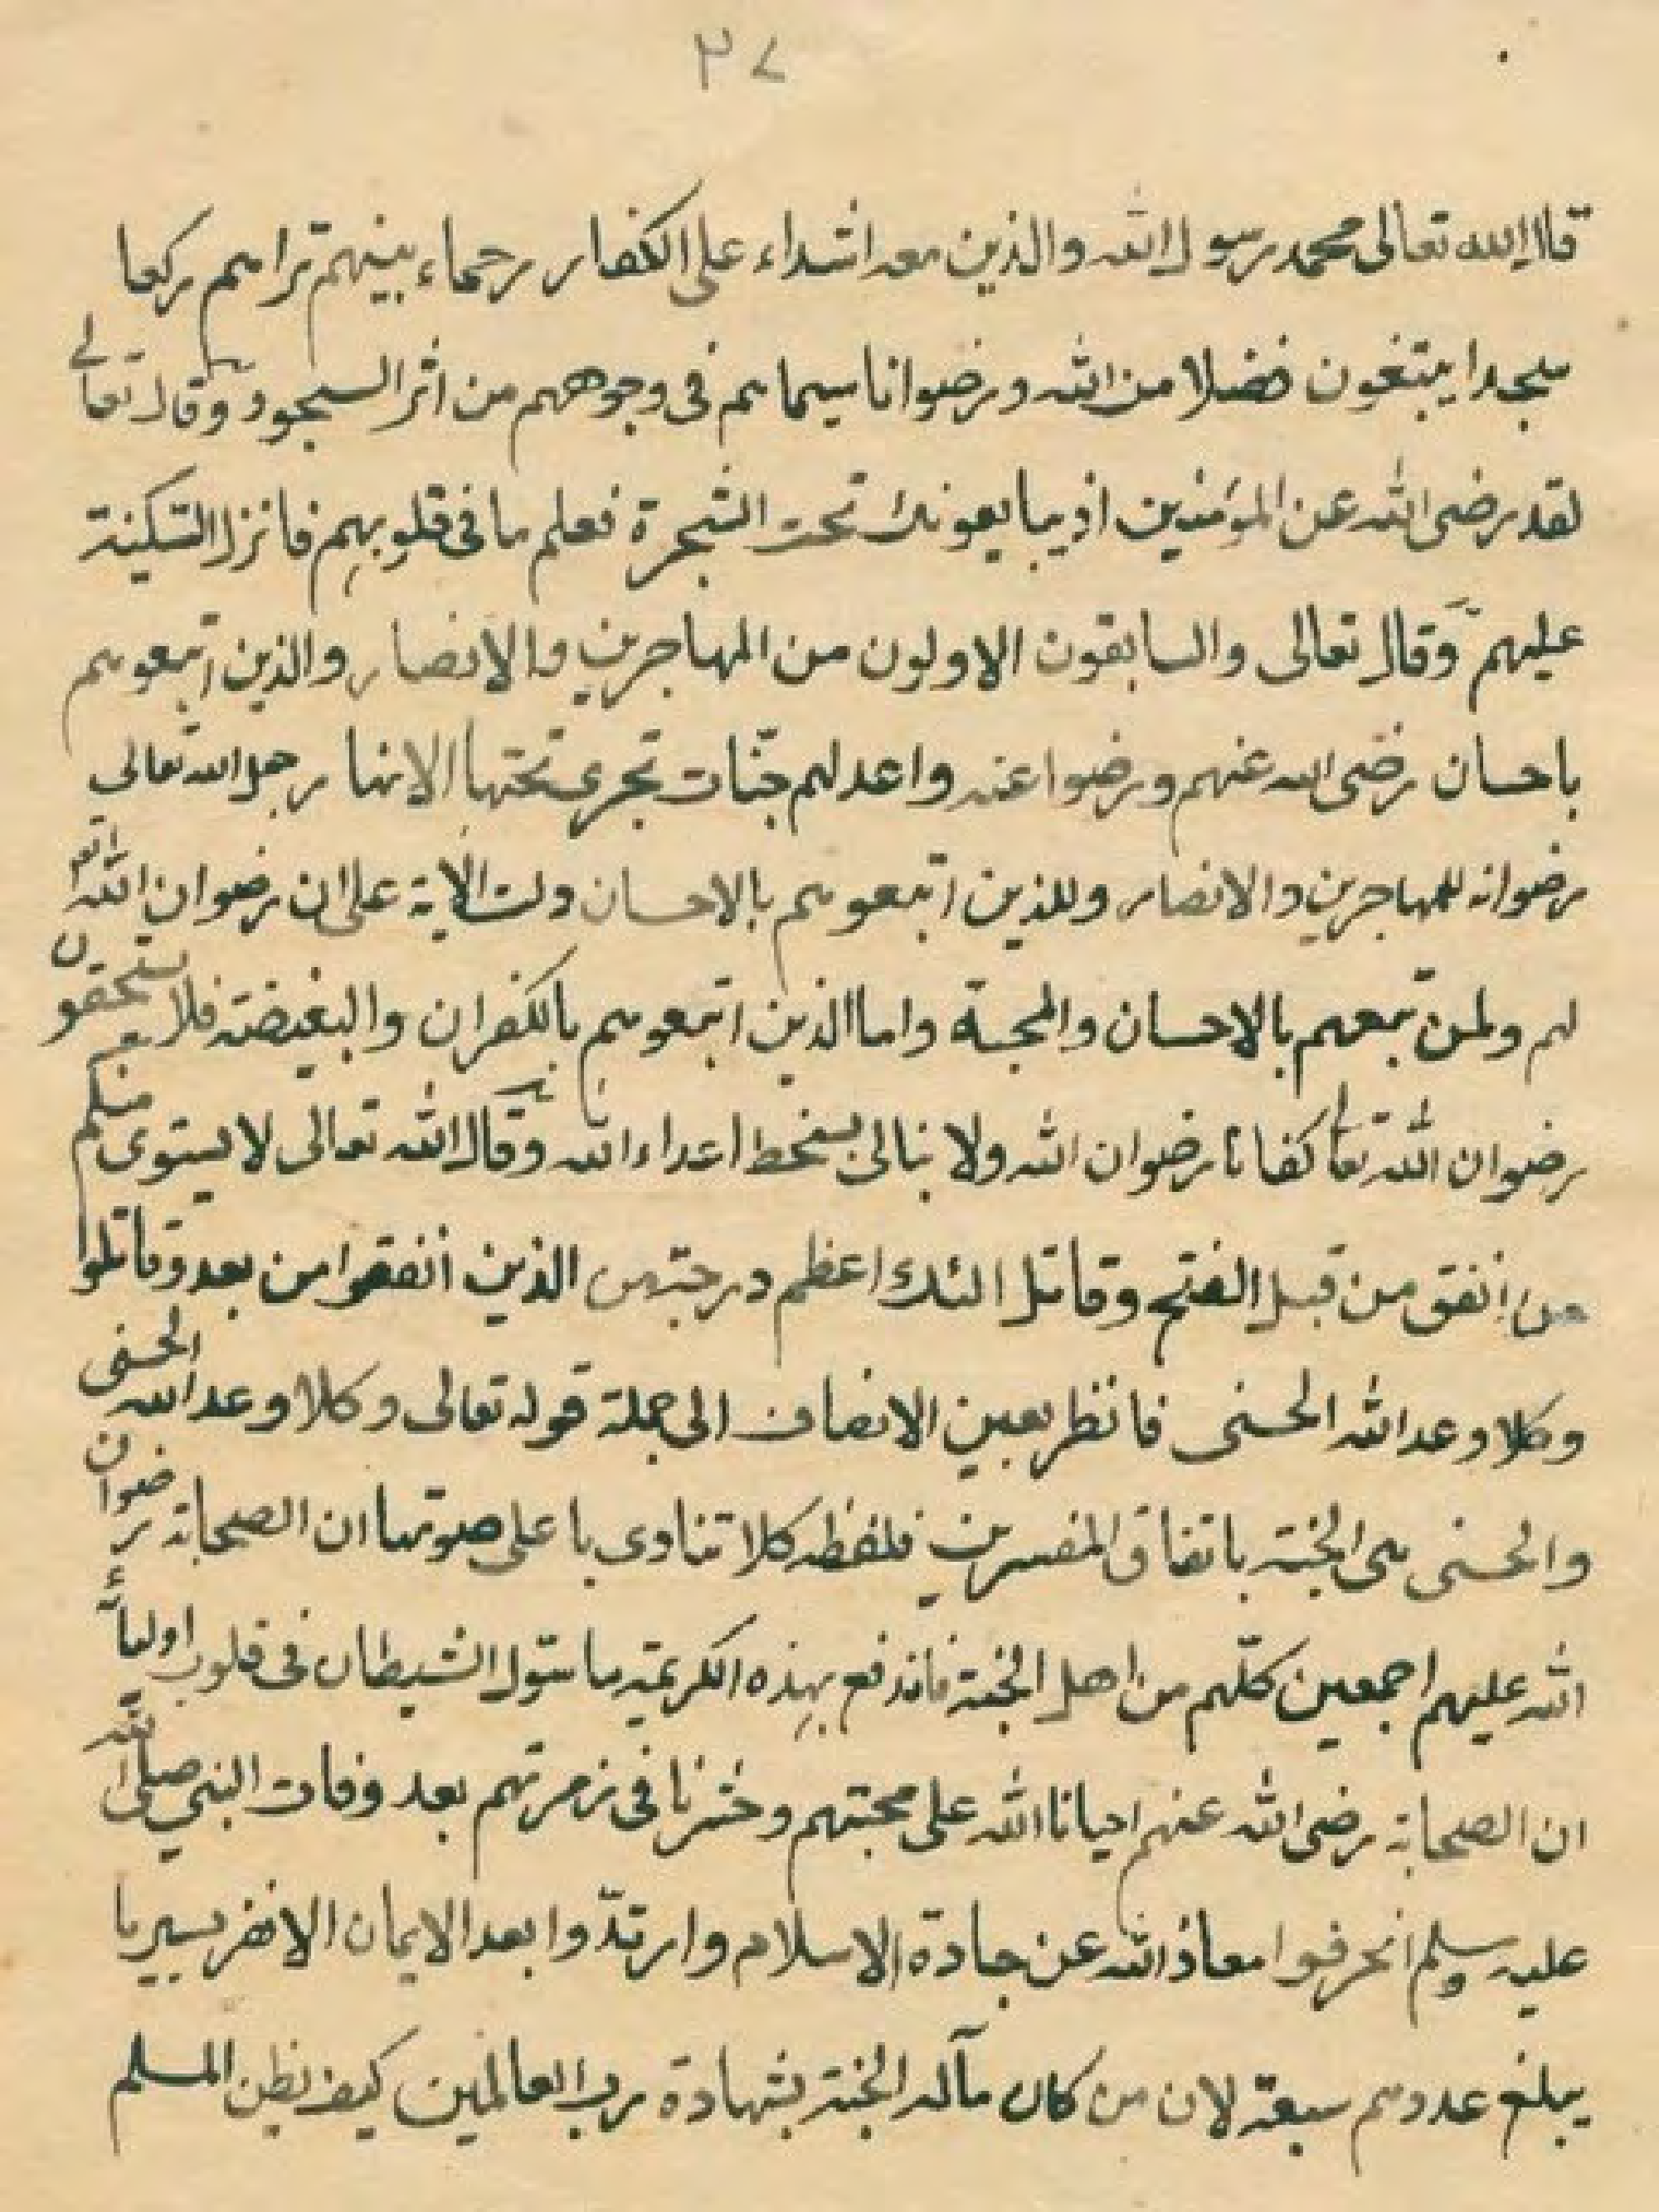 ٣٧
قال الله تعالى محمد رسول الله والذين معه اشداء على الكفار رحماء بينهم تراهم ركعا
سجدا يبتغون فضلا من الله ورضوانا سيماهم فى وجوههم من أثر السجود وقال تعالى
لقد رضى الله عن المؤمنين اذ يبايعونك تحت الشجرة فعلم ما فى قلوبهم فانزل السكينة
عليهم وقال تعالى والسابقون الاولون من المهاجرين والانصار والذين اتبعوهم
باحسان رضى الله عنهم ورضوا عنه واعد لهم جنّات تجرى تحتها الانهار جعل الله تعالى
رضوانه للمهاجرين والانصار وللذين اتبعوهم بالاحسان دلت الآية على ان رضوان الله
لهم ولمن تبعهم بالاحسان والمحبة واما الذين اتبعوهم بالكفران والبغيضة فلا يستحقون
رضوان الله تعا كفانا رضوان الله ولا نبالى بسخط اعداء الله وقال الله تعالى لا يستوى منكم
من انفق من قبل الفتح وقاتل الئك اعظم درجة من الذين انفقوا من بعد وقاتلوا
وكلا وعد الله الحسنى فانظر بعين الانصاف الى جملة قوله تعالى وكلا وعد الله الحسنى
والحسنى هى الجنة باتفاق المفسرين فلفظه كلا تنادى باعلى صوتها ان الصحابة رضوان
الله عليهم اجمعين كلّهم من اهل الجنة فاندفع بهذه الكريمة ما سّول الشيطان فى قلوب اولياء
ان الصحابة رضى الله عنهم احيانا الله على محبتهم وحشرنا فى زمرتهم بعد وفات النبي صلى الله
عليه وسلم انحرفوا معاذ الله عن جادة الاسلام وارتدّوا بعد الايمان الا نفر يسير ما
يبلغ عددهم سبعة لان من كان مآله الجنة بشهادة رب العالمين كيف يظن المسلم